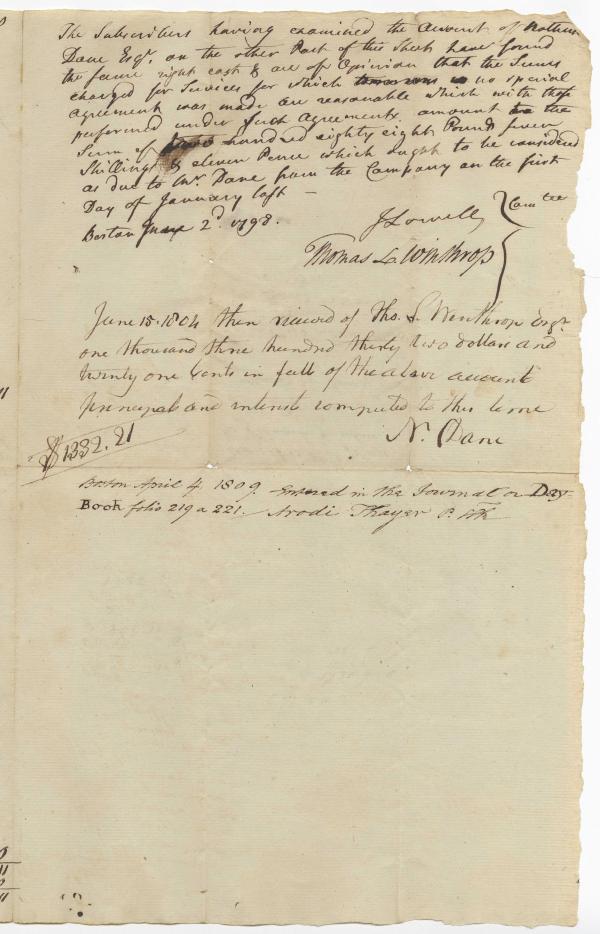 The Subscribers having examined the Account of Nathan
Dane Esqr. on the other Part of this Sheet have found
the same right cast & are of Opinion that the Sums
charged for Services for which no special
Agreement was made are reasonable which with those
performed under such Agreements amount to the
Sum of hundred eighty eight Pounds seven
Shillings & eleven Pence which ought to be considered
as due to Mr. Dane from the Company on the first
Day of January last —
Boston 2d. 1798.
J Lowell
Com tee
Thomas L Winthrop
June 15. 1804 then received of Tho. L Winthrop Esqr.
one thousand three hundred thirty two dollars and
twenty one Cents in full of the above account
principal and interest computed to this time
N. Dane
$1332.21
Boston April 4. 1809. Entered in the Journal or Day
Book folio 219 a 221. Arodi Thayer